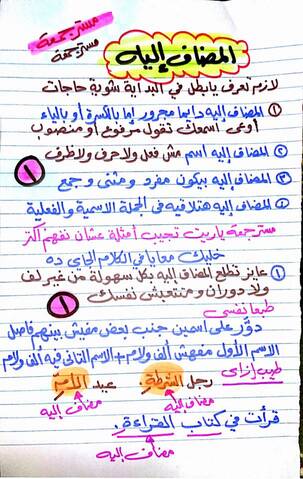 مستر جمعة
مستر جمعة
المضاف إليه
لازم تعرف يا بطل في البداية شوية حاجات
① المضاف إليه دايما مجرور إما بالكسرة أو بالياء
أوعى اسمعك تقول مرفوع أو منصوب
② المضاف إليه اسم مش فعل ولا حرف ولا ظرف
③ المضاف إليه بيكون مفرد ومثنى وجمع
①
④ المضاف إليه هتلاقيه في الجملة الاسمية والفعلية
مستر جمعة ياريت تجيب أمثلة عشان نفهم أكتر
خليك معايا في الكلام الجاي ده
① عايز تطلع المضاف إليه بكل سهولة من غير لف
ولا دوران ومتتعبش نفسك
طبعا نفسي
①
دوَّر على اسمين جنب بعض مفيش بينهم فاصل
الاسم الأول مفهش ألف ولام + الاسم الثاني فيه ألف ولام
طيب إزاي
رجل الشرطة. عيد الأم
مضاف إليه مضاف إليه
قرأت في كتاب القراءة.
مضاف إليه